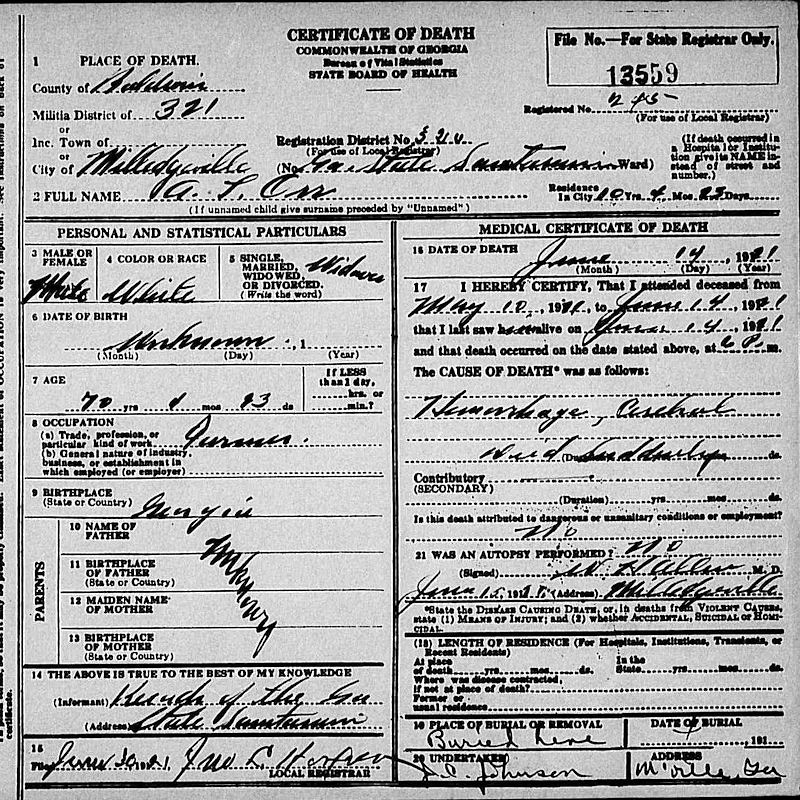 CERTIFICATE OF DEATH
COMMONWEALTH OF GEORGIA
Bureau of Vital Statistics
STATE BOARD OF HEALTH
File No.—For State Registrar Only.
13559
1 PLACE OF DEATH.
County of Baldwin
Militia District of 321
or
Inc. Town of
or
City of Milledgeville
Registered No.
(For use of Local Registrar)
Registration District No. 320
(For use of Local Registrar)
(No. Ga. State Sanitarium Ward)
(If death occurred in a Hospital or Institution give its NAME instead of street and number.)
2 FULL NAME Orr
(If unnamed child give surname preceded by "Unnamed")
Residence In City 10 Yrs. 4 Mos 23 Days
PERSONAL AND STATISTICAL PARTICULARS
3 MALE OR FEMALE
4 COLOR OR RACE
White
5 SINGLE, MARRIED, WIDOWED, OR DIVORCED.
(Write the word)
6 DATE OF BIRTH
Unknown , 1
(Month) (Day) (Year)
7 AGE
70 yrs mos 23 ds
If LESS than 1 day, hrs. or min.?
8 OCCUPATION
(a) Trade, profession, or particular kind of work Farmer.
(b) General nature of industry, business, or establishment in which employed (or employer)
9 BIRTHPLACE
(State or Country) Georgia
PARENTS
10 NAME OF FATHER
11 BIRTHPLACE OF FATHER
(State or Country)
12 MAIDEN NAME OF MOTHER
13 BIRTHPLACE OF MOTHER
(State or Country)
Unknown
14 THE ABOVE IS TRUE TO THE BEST OF MY KNOWLEDGE
(Informant) Records of the Ga
(Address) State Sanitarium
15
LOCAL REGISTRAR
MEDICAL CERTIFICATE OF DEATH
16 DATE OF DEATH
June 14, 1921
(Month) (Day) (Year)
17 I HEREBY CERTIFY, That I attended deceased from
May 10, 1921, to June 14, 1921
that I last saw alive on June 14, 1921
and that death occurred on the date stated above, at 6 P. m.
The CAUSE OF DEATH* was as follows:
Hemorrhage, Cerebral
Died Suddenly
(Duration) ds.
Contributory
(SECONDARY)
(Duration) yrs mos ds.
Is this death attributed to dangerous or unsanitary conditions or employment?
No
21 WAS AN AUTOPSY PERFORMED? No
(Signed) M. D.
June 15, 192 (Address) Milledgeville
*State the DISEASE CAUSING DEATH, or, in deaths from VIOLENT CAUSES, state (1) MEANS OF INJURY; and (2) whether ACCIDENTAL, SUICIDAL OR HOMICIDAL.
(18) LENGTH OF RESIDENCE (For Hospitals, Institutions, Transients, or Recent Residents)
At place of death yrs. mos. ds. In the State yrs. mos. ds.
Where was disease contracted, if not at place of death?
Former or usual residence
19 PLACE OF BURIAL OR REMOVAL
Buried here
DATE OF BURIAL
191
20 UNDERTAKER
J. C. Johnson
ADDRESS
M'ville, Ga